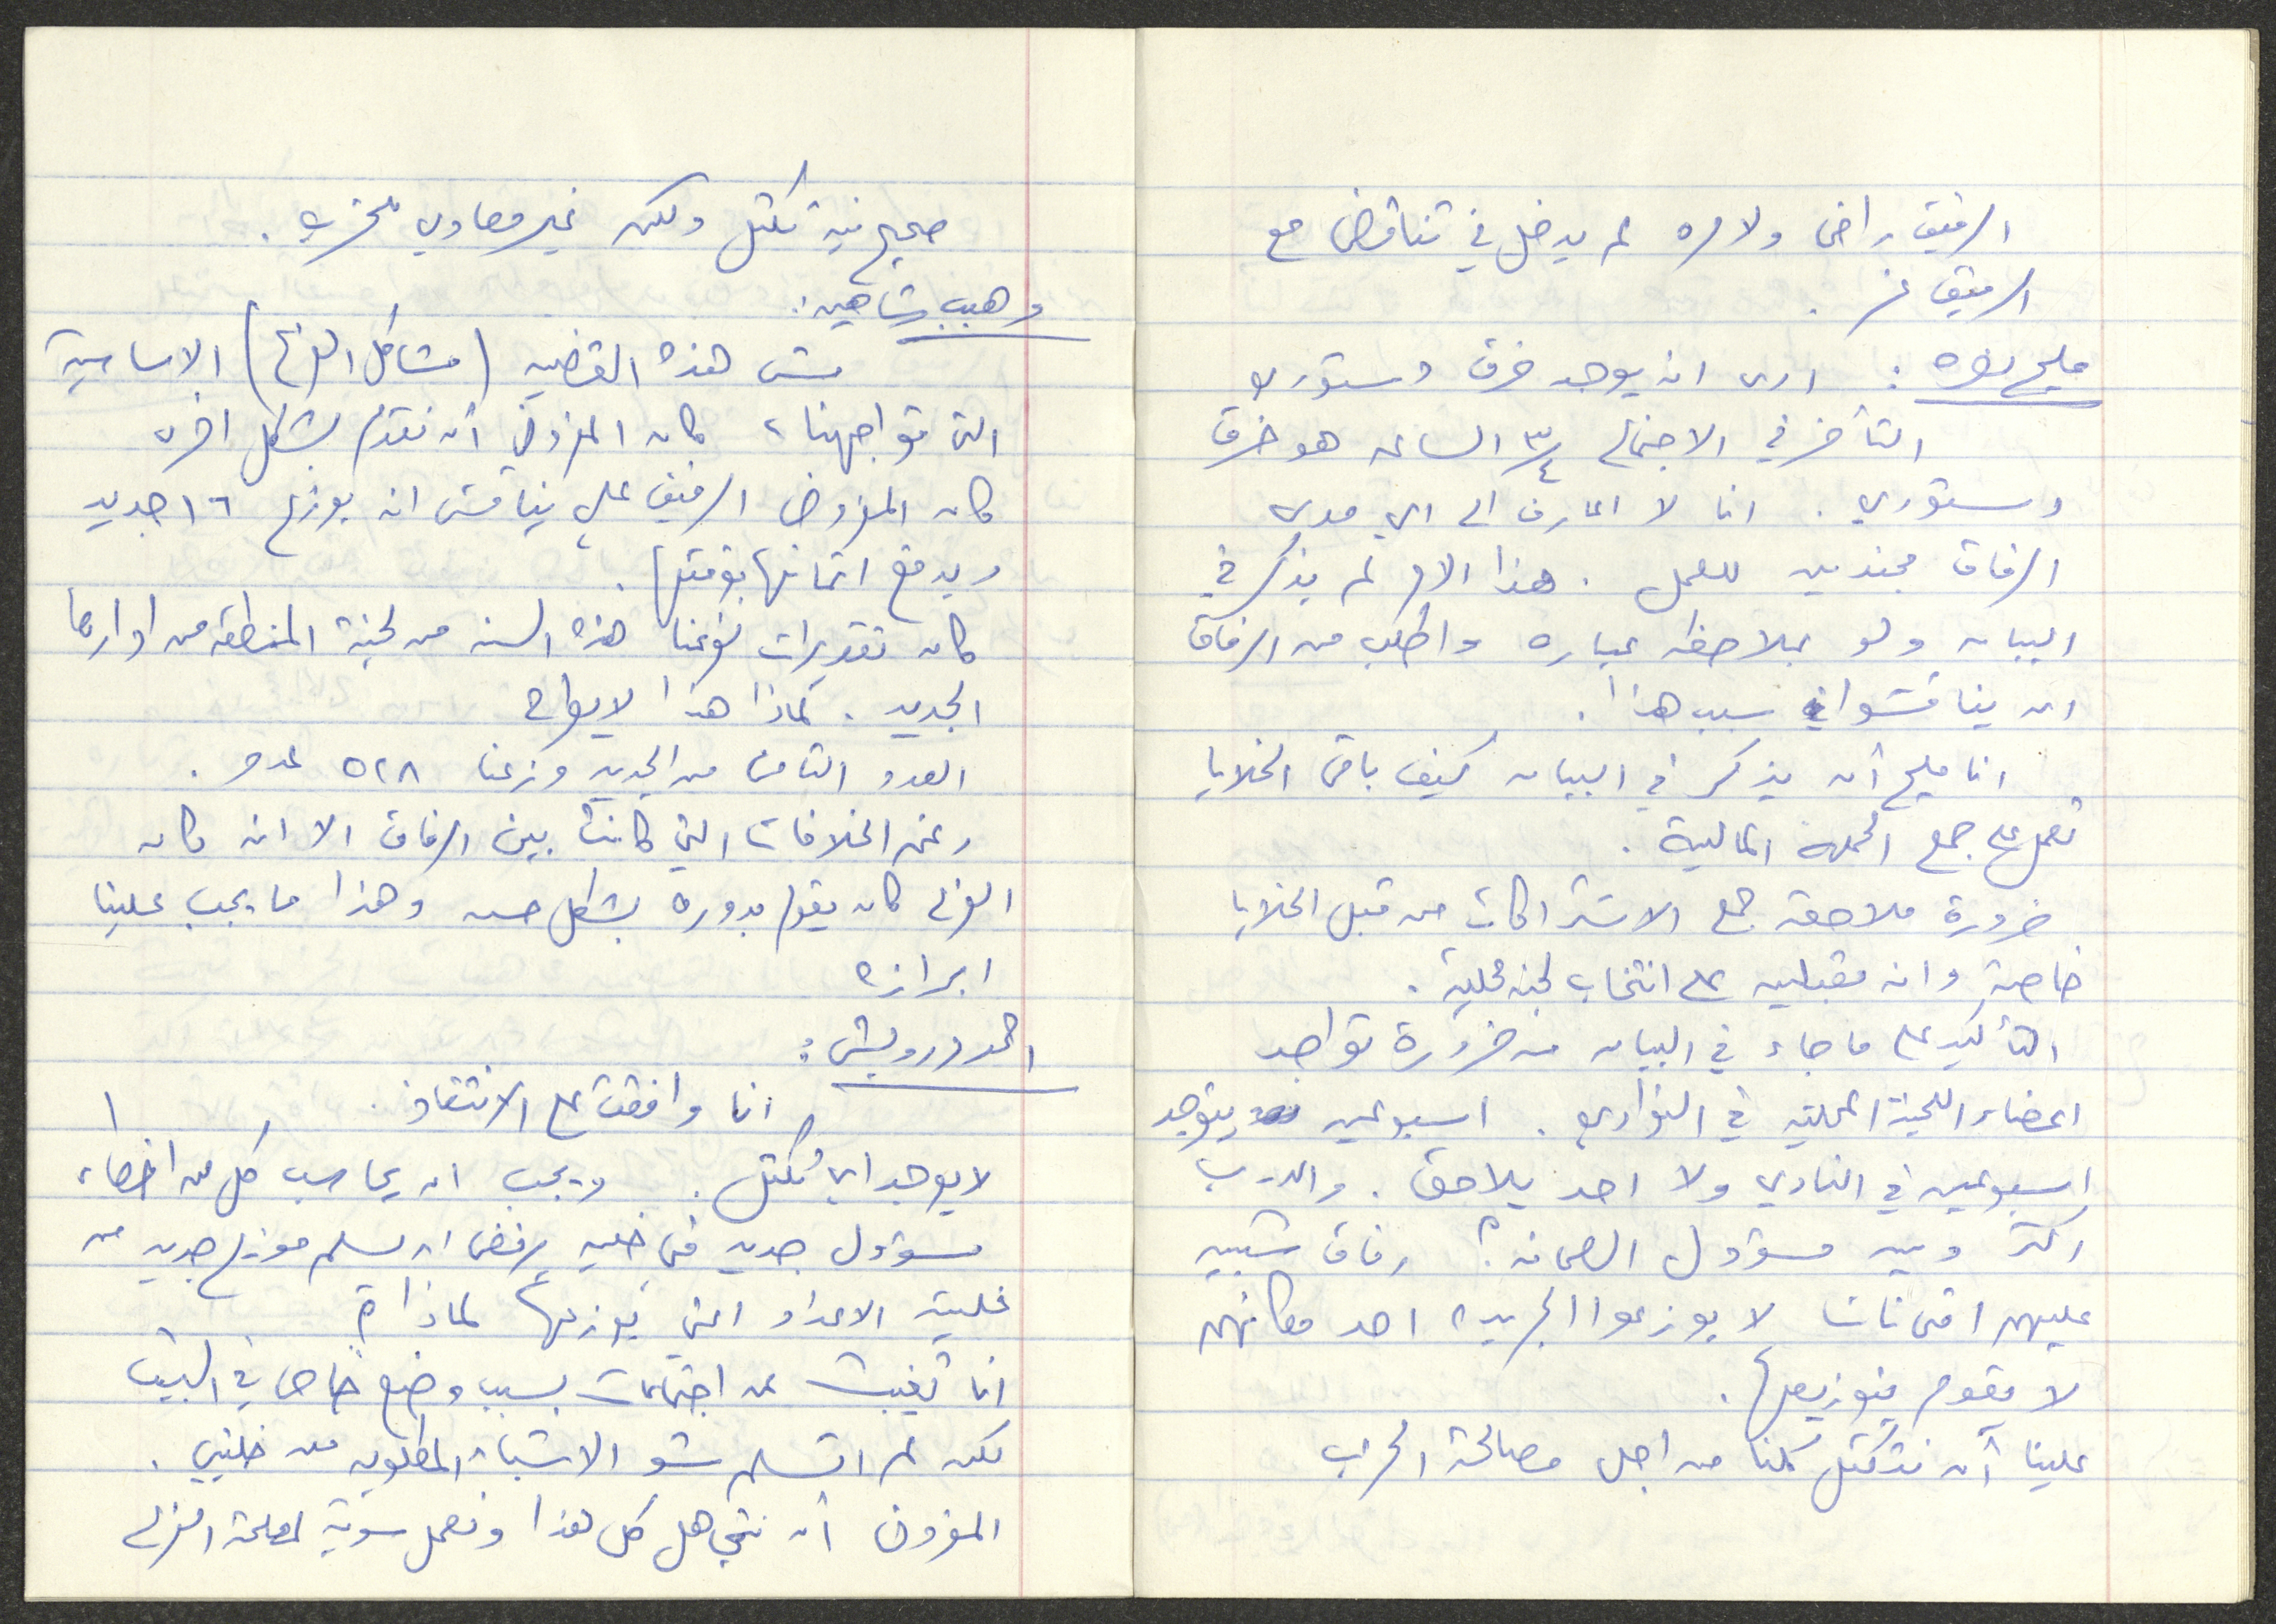 الرفيق راضي ولا مره لم يدخل في تناقض مع
الرفيق
مليح نصره : ارى انه يوجد خرق دستوري
التأخر في الاجتماع ٣/٤ الساعه هو خرق
دستوري . انا لا اعارف الى اي مدى
الرفاق مجندين للعمل . هذا الامر لم يذكر في
البيان ولو بملاحظه عباره واطلب من الرفاق
ان يناقشوا في سبب هذا .
انا مليح أن يذكر في البيان كيف باقي الخلايا
تعمل على جمع الحمله المالية .
ضرورة ملاحقة جمع الاشتراكات من قبل الخلايا
خاصة وانه مقبلين على انتخاب لجنه محلية .
التأكيد على ما جاء في البيان من ضرورة تواجد
اعضاء اللجنة المحلية في النوادي . اسبوعين يتوجد
اسبوعين في النادي ولا احد يلاحق . والدرب
اكثر ومين مسؤول الصحافه ؟ رفاق شبيبه
عليهم اقتناتنا لا يوزعوا الجريده احد مكانهم
لا يقوم بتوزيعها .
علينا أن نتكتل كلنا من اجل مصالحة الحزب
صحيح فيه تكتل ولكن غير معادي للحزب .
وهيب شاهين :
مش هذه القضيه (مشاكل الفرع) الاساسية
التي تواجهنا ، كان المفروض أن نتقدم بشكل اخر
كان المفروض الرفيق علي يناقش انه يوزع ١٦ جديد
ويدفع اثمانها بوقتها .
كان تقديرات لفرعنا هذه السنه من لجنة المنطقه من اوارها
الجديد . لماذا هذا لا يطرح
العدد الثامن من الجديد وزعنا ٥٢٨ عدد .
رغم الخلافات التي كانت بين الرفاق الا انه كان
الفرع كان يقوم بدوره بشكل حسن وهذا ما يجب علينا
ابرازه
احمد درويش :
انا وافقت على الانتقاد .
لا يوجد اي تكتل . ويجب ان يحاسب كل من اخطاء
مسؤول جديد في خليه يرفض ان يسلم موزع جديد من
خليته الاعداد التي يوزعها لماذا ؟
انا تغيبت عن اجتماعات بسبب وضع خاص في البيت
لكن لم اتسلم شو الاشياء المطلوبه من خليتي .
المفروض أن نتجاهل كل هذا ونعمل سوية لمصلحة الفرع